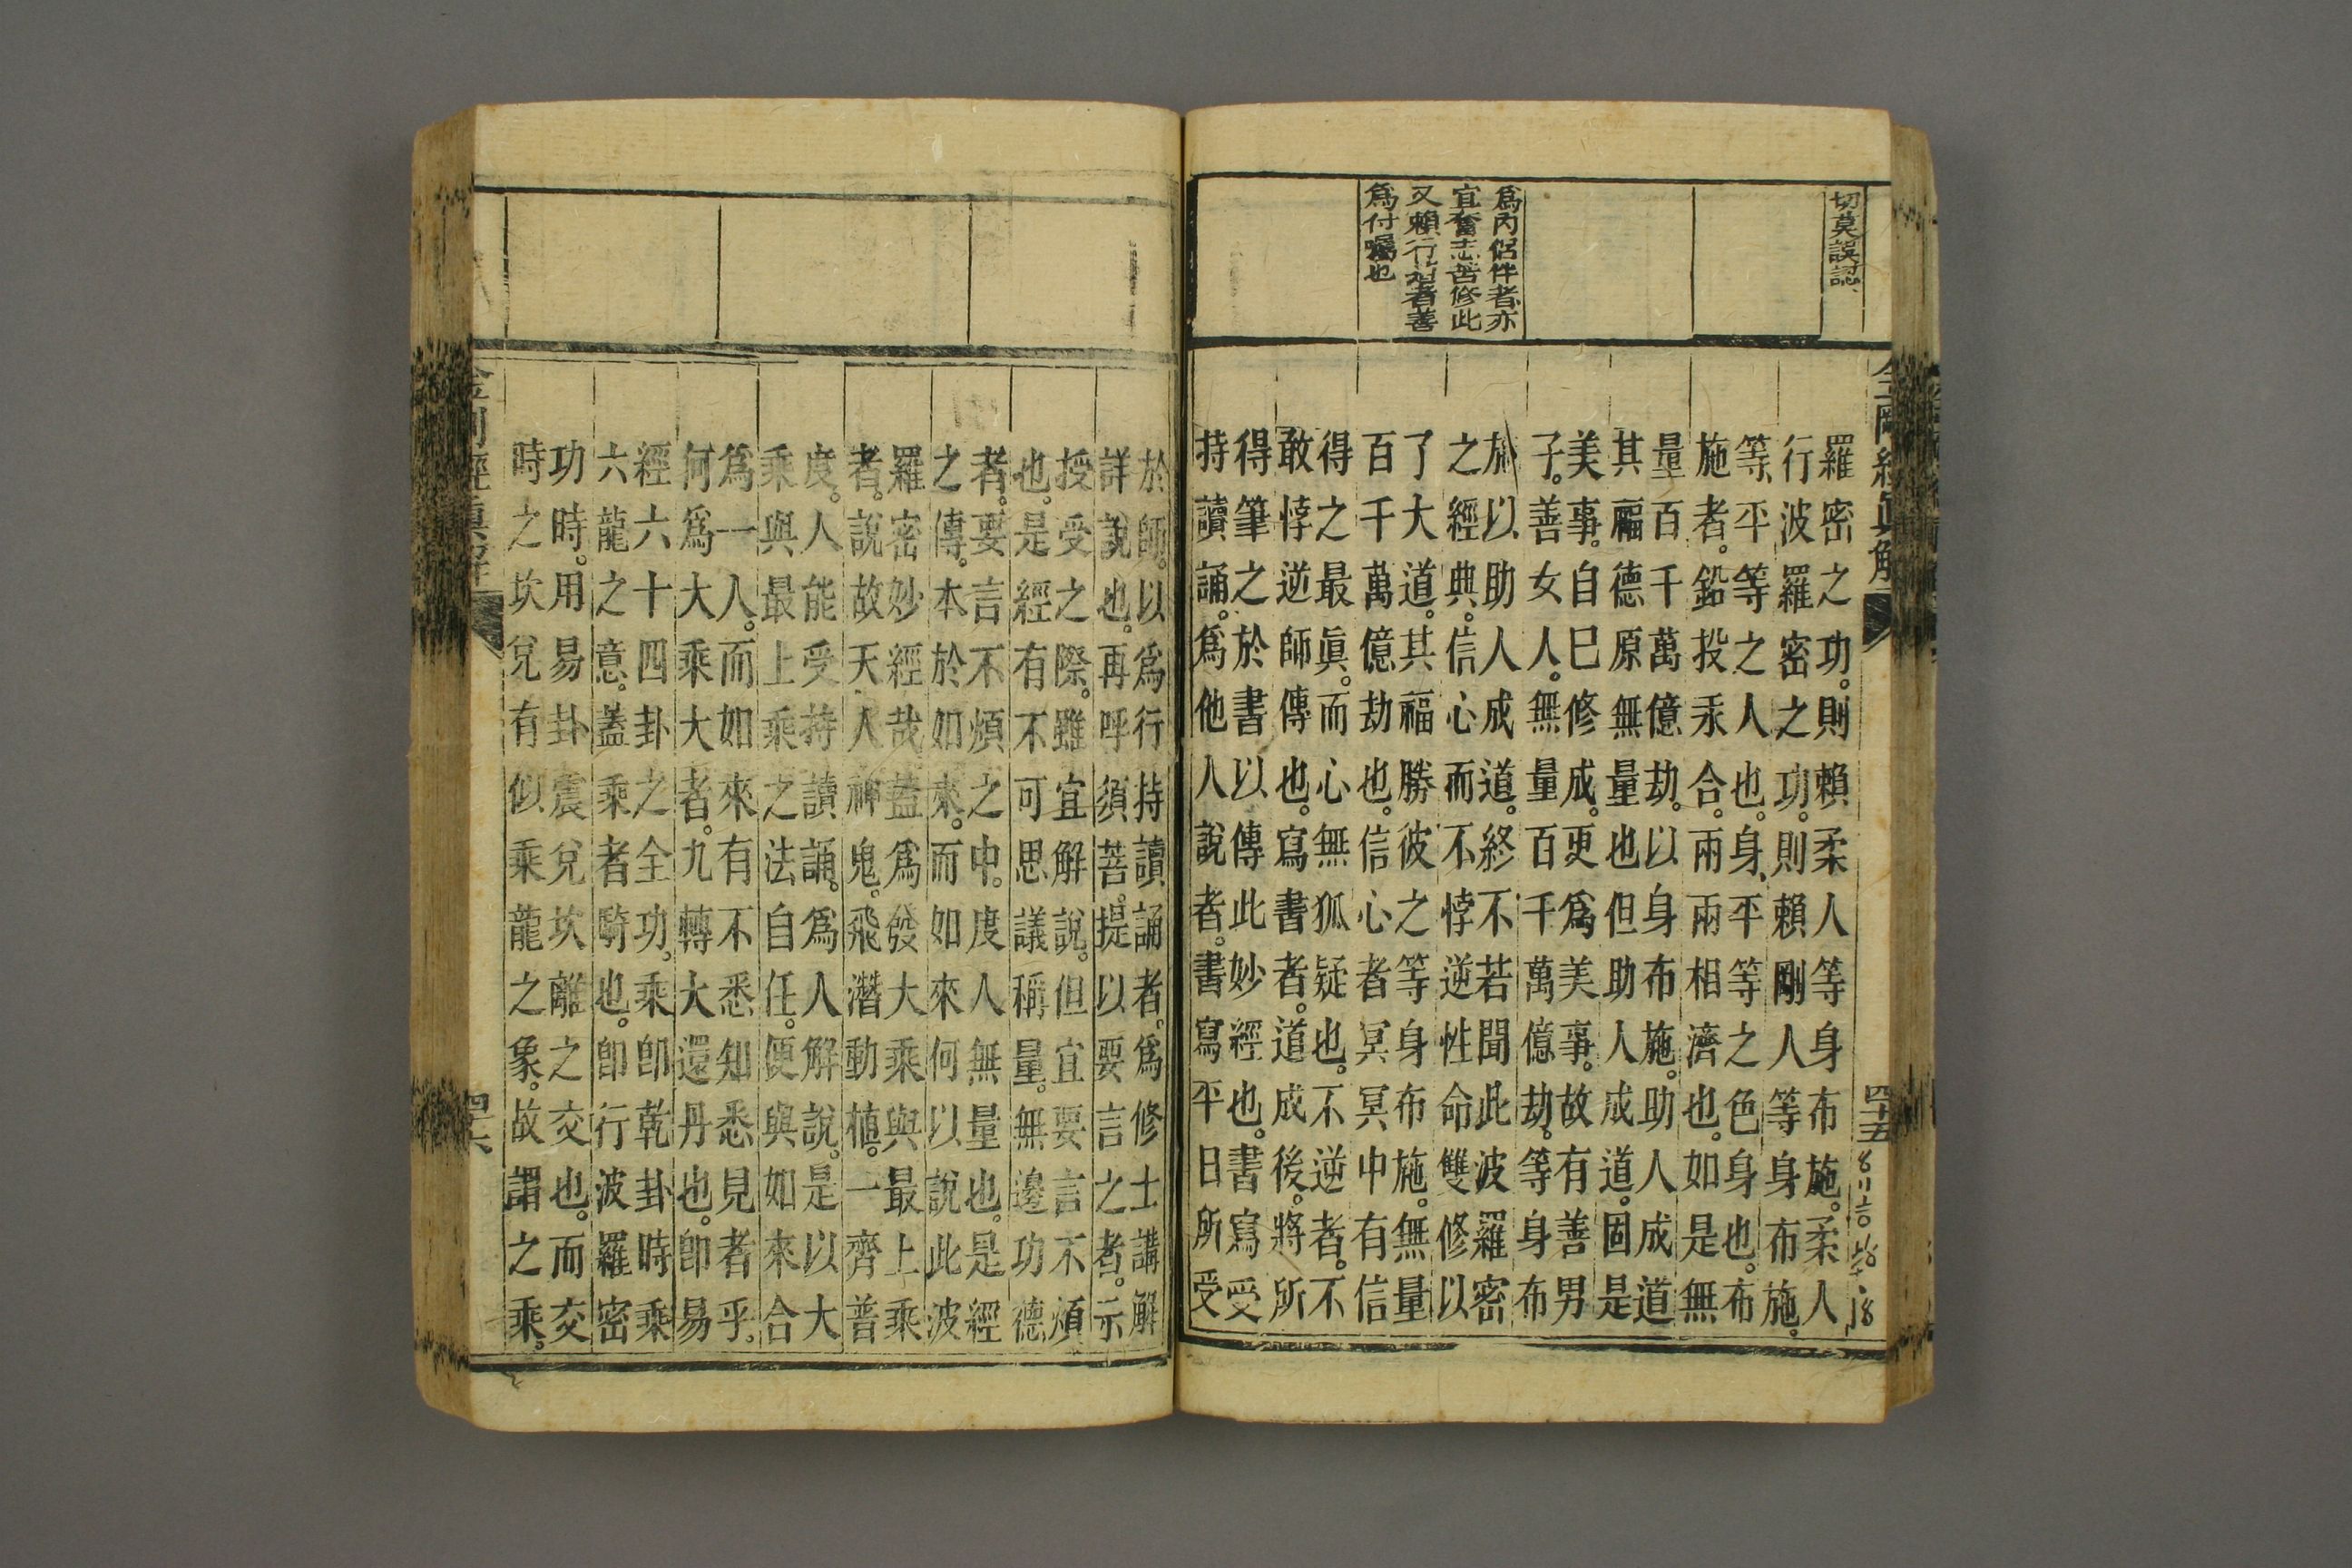 金剛經眞解
四十五
切莫誤認、
爲丙侶伴者亦
宜奮志苦修此
又賴行道者善
爲付囑也
羅密之功。則賴柔人等身布施。柔人
行波羅密之功。則賴剛人等身布施。
等、平等之人也。身、平等之色身也。布
施者。鉛投汞合。兩兩相濟也。如是無
量百千萬億劫。以身布施。助人成道
其福德原無量也但助人成道。固是
美事。自巳修成。更爲美事。故有善男
子。善女人。無量百千萬億劫。等身布
施以助人成道。終不若聞此波羅密
之經典。信心而不悖逆性命雙修以
了大道。其福勝彼之等身布施。無量
百千萬億劫也。信心者冥冥中有信
得之最眞。而心無狐疑也。不逆者。不
敢悖逆師傳也。寫書者。道成後。將所
得筆之於書以傳此妙經也。書寫受
持讀誦。爲他人說者。書寫平日所受
於師。以爲行持讀誦者。爲修士講解
詳說也。再呼須菩。提以要言之者。示
授受之際。雖宜解說。但宜要言不煩
也。是經有不可思議稱量。無邊功德
者。要言不煩之中。度人無量也。是經
之傳。本於如來。而如來何以說此波
羅密妙經哉蓋爲發大乘與最上乘
者。說故天人神鬼。飛潛動植。一齊普
度。人能受持讀誦。爲人解說。是以大
乘與最上乘之法自任。便與如來合
爲一人。而如來有不悉知悉見者乎。
何爲大乘大者。九轉大還丹也。卽易
經六十四卦之全功。乘卽乾卦時乘
六龍之意。蓋乘者騎也。卽行波羅密
功時。用易卦震兌坎離之交也。而交
時之坎兌有似乘龍之象。故謂之乘。
金剛經眞解
四十六